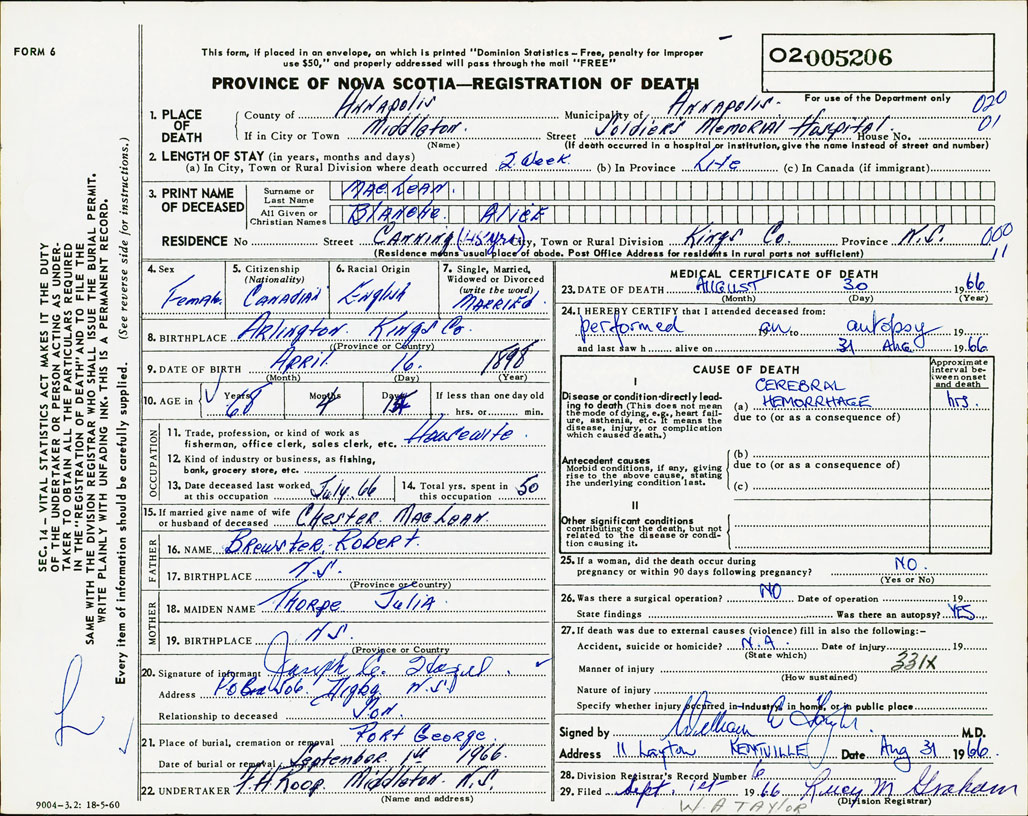 FORM 6
This form, if placed in an envelope, on which is printed "Dominion Statistics – Free, penalty for improper
use $50," and properly addressed will pass through the mail "FREE"
02-005206
PROVINCE OF NOVA SCOTIA—REGISTRATION OF DEATH
For use of the Department only
020
01
1. PLACE OF DEATH
County of Annapolis Municipality of Annapolis.
If in City or Town Middleton. Street Soldiers Memorial Hospital. House No.
(Name) (If death occurred in a hospital or institution, give the name instead of street and number)
2. LENGTH OF STAY (in years, months and days)
(a) In City, Town or Rural Division where death occurred 2 Week (b) In Province Life (c) In Canada (if immigrant)
3. PRINT NAME OF DECEASED
Surname or Last Name MacLean.
All Given or Christian Names Blanche Alice
RESIDENCE No Street Canning (45 yrs) City, Town or Rural Division Kings Co. Province N.S. 000
11
(Residence means usual place of abode. Post Office Address for residents in rural parts not sufficient)
4. Sex Female
5. Citizenship (Nationality) Canadian
6. Racial Origin English
7. Single, Married, Widowed or Divorced (write the word) Married
8. BIRTHPLACE Arlington Kings Co.
(Province or Country)
9. DATE OF BIRTH April 16. 1898
(Month) (Day) (Year)
10. AGE in Years 68 Months 4 Days 14 If less than one day old
hrs. or min.
OCCUPATION
11. Trade, profession, or kind of work as fisherman, office clerk, sales clerk, etc. Housewife.
12. Kind of industry or business, as fishing, bank, grocery store, etc.
13. Date deceased last worked at this occupation July. 66
14. Total yrs. spent in this occupation 50
15. If married give name of wife or husband of deceased Chester MacLean
FATHER
16. NAME Brewster, Robert.
17. BIRTHPLACE N.S.
(Province or Country)
MOTHER
18. MAIDEN NAME Thorpe Julia
19. BIRTHPLACE N.S.
(Province or Country
20. Signature of informant Joseph
Address Digby N.S.
Relationship to deceased Son.
21. Place of burial, cremation or removal Port George.
Date of burial or removal September 1st 1966.
22. UNDERTAKER F.H. Roop Middleton N.S.
(Name and address)
9004–3.2: 18-5-60
MEDICAL CERTIFICATE OF DEATH
23. DATE OF DEATH August 30 1966
(Month) (Day) (Year)
24. I HEREBY CERTIFY that I attended deceased from:
performed an to autopsy 19
and last saw h alive on 31 Aug 1966
CAUSE OF DEATH
Approximate interval between onset and death
I
Disease or condition directly leading to death (This does not mean the mode of dying, e.g., heart failure, asthenia, etc. It means the disease, injury, or complication which caused death.)
(a) CEREBRAL HEMORRHAGE hrs.
due to (or as a consequence of)
Antecedent causes
Morbid conditions, if any, giving rise to the above cause, stating the underlying condition last.
(b)
due to (or as a consequence of)
(c)
II
Other significant conditions
contributing to the death, but not related to the disease or condition causing it.
25. If a woman, did the death occur during pregnancy or within 90 days following pregnancy? NO.
(Yes or No)
26. Was there a surgical operation? NO Date of operation 19
State findings Was there an autopsy? YES
27. If death was due to external causes (violence) fill in also the following:–
Accident, suicide or homicide? N.A. Date of injury 19
(State which)
Manner of injury 331X
(How sustained)
Nature of injury
Specify whether injury occurred in industry, in home, or in public place
Signed by William M.D.
Address 11 Layton KENTVILLE Date Aug 31 1966
28. Division Registrar's Record Number 6
29. Filed Sept. 1st 1966 Lucy M Graham
(Division Registrar)
W. A TAYLOR
SEC. 14 – VITAL STATISTICS ACT MAKES IT THE DUTY
OF THE UNDERTAKER OR PERSON ACTING AS UNDERTAKER
TO OBTAIN ALL THE PARTICULARS REQUIRED
IN THE "REGISTRATION OF DEATH" AND TO FILE THE
SAME WITH THE DIVISION REGISTRAR WHO SHALL ISSUE THE BURIAL PERMIT.
WRITE PLAINLY WITH UNFADING INK. THIS IS A PERMANENT RECORD.
Every item of information should be carefully supplied. (See reverse side for instructions.)